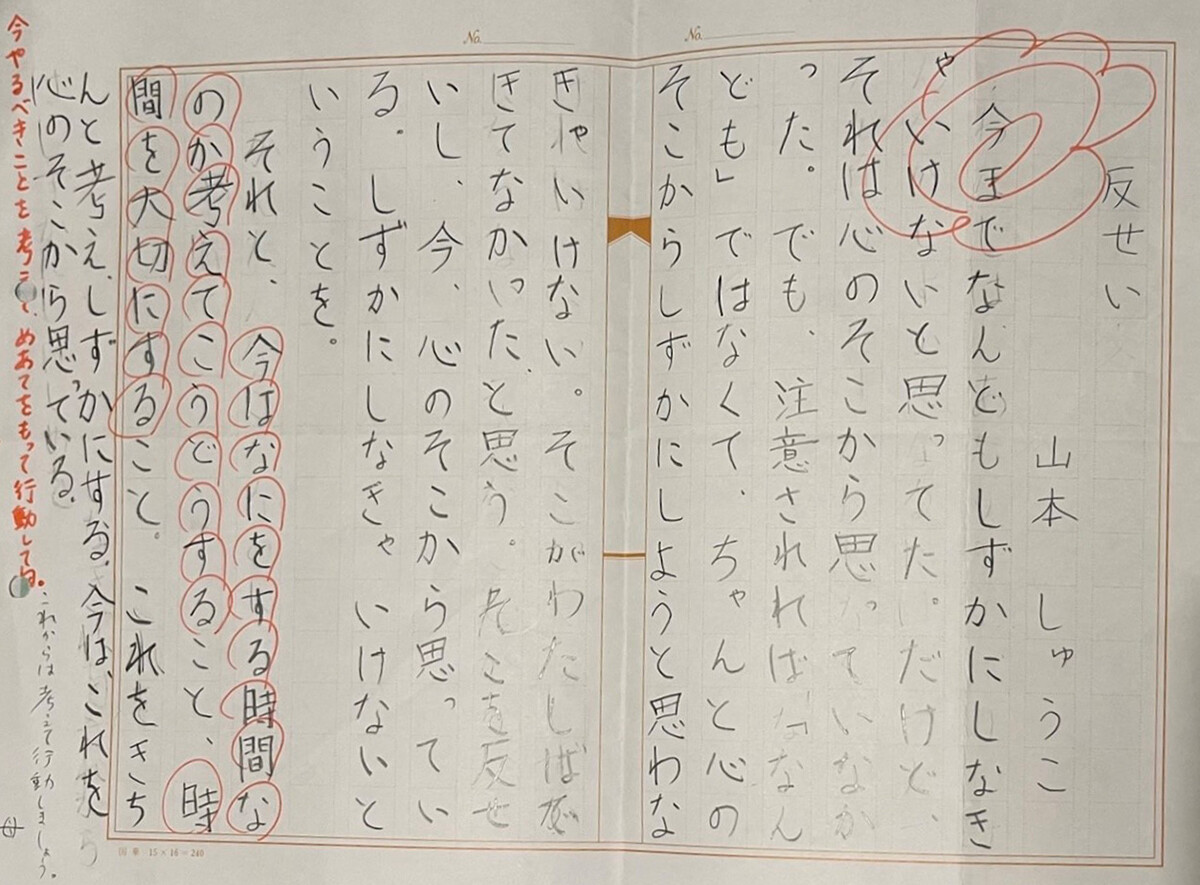 No.
No.
反せい
山本 しゅうこ
今までなんどもしずかにしなき
ゃいけないと思ってた。だけど、
それは心のそこから思っていなか
った。でも、注意されれば「なん
ども」ではなくて、ちゃんと心の
そこからしずかにしようと思わな
きゃいけない。そこがわたしは
きてなかった、と思う。そこを反せ
いし、今、心のそこから思ってい
る。しずかにしなきゃいけないと
いうことを。
それと、今はなにをする時間な
のか考えてこうどうすること、時
間を大切にすること。これをきち
んと考え、しずかにする。今は、これを
心のそこから思っている。
今やるべきことを考えて、めあてをもって行動してね。
これからは考えて行動しましょう。
国華 15×16=240